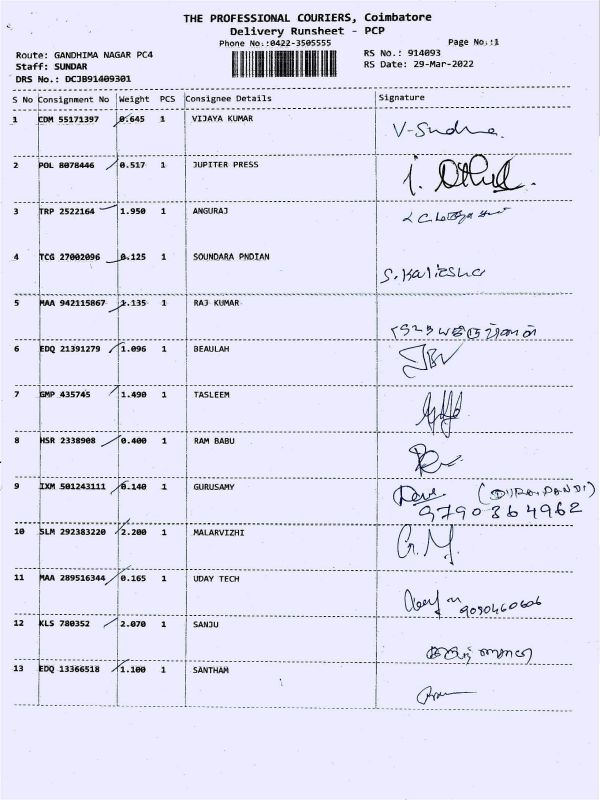 THE PROFESSIONAL COURIERS, Coimbatore
Delivery Runsheet - PCP
Phone No.:0422-3505555
Page No.:1
Route: GANDHIMA NAGAR PC4
RS No.: 914093
Staff: SUNDAR
RS Date: 29-Mar-2022
DRS No.: DCJB91409301
S No Consignment No Weight PCS Consignee Details Signature
1 CDM 55171397 0.645 1 VIJAYA KUMAR
2 POL 8078446 0.517 1 JUPITER PRESS
3 TRP 2522164 1.950 1 ANGURAJ
4 TCG 27002096 0.125 1 SOUNDARA PNDIAN
S. Kaliesha
5 MAA 942115867 1.135 1 RAJ KUMAR
6 EDQ 21391279 1.096 1 BEAULAH
7 GMP 435745 1.490 1 TASLEEM
8 HSR 2338908 0.400 1 RAM BABU
9 IXM 501243111 0.140 1 GURUSAMY
(DURAI PANDI)
9790364962
10 SLM 292383220 2.200 1 MALARVIZHI
G. M.
11 MAA 289516344 0.165 1 UDAY TECH
9090460606
12 KLS 780352 2.070 1 SANJU
13 EDQ 13366518 1.100 1 SANTHAM